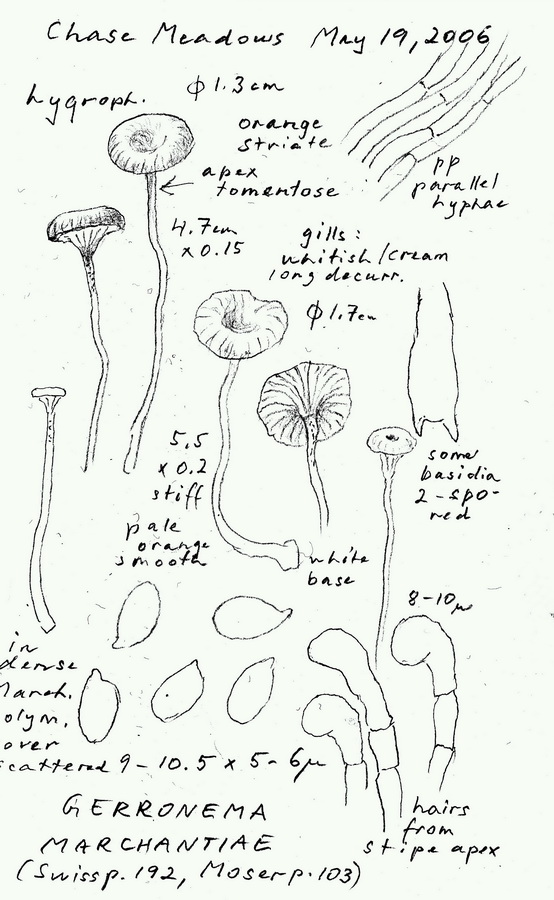 Chase Meadows May 19, 2006
hygroph.
φ 1.3 cm
orange
striate
apex
tomentose
4.7cm
x 0.15
pp
parallel
hyphae
gills:
whitish/cream
long decurr.
φ 1.7cm
some
basidia
2-spo-
red
5.5
x 0.2
stiff
pale
orange
smooth
white
base
8-10μ
in
dense
March.
olym,
over
scattered
9-10.5 x 5-6μ
hairs
from
stipe apex
GERRONEMA
MARCHANTIAE
(Swiss p. 192, Moser p. 103)